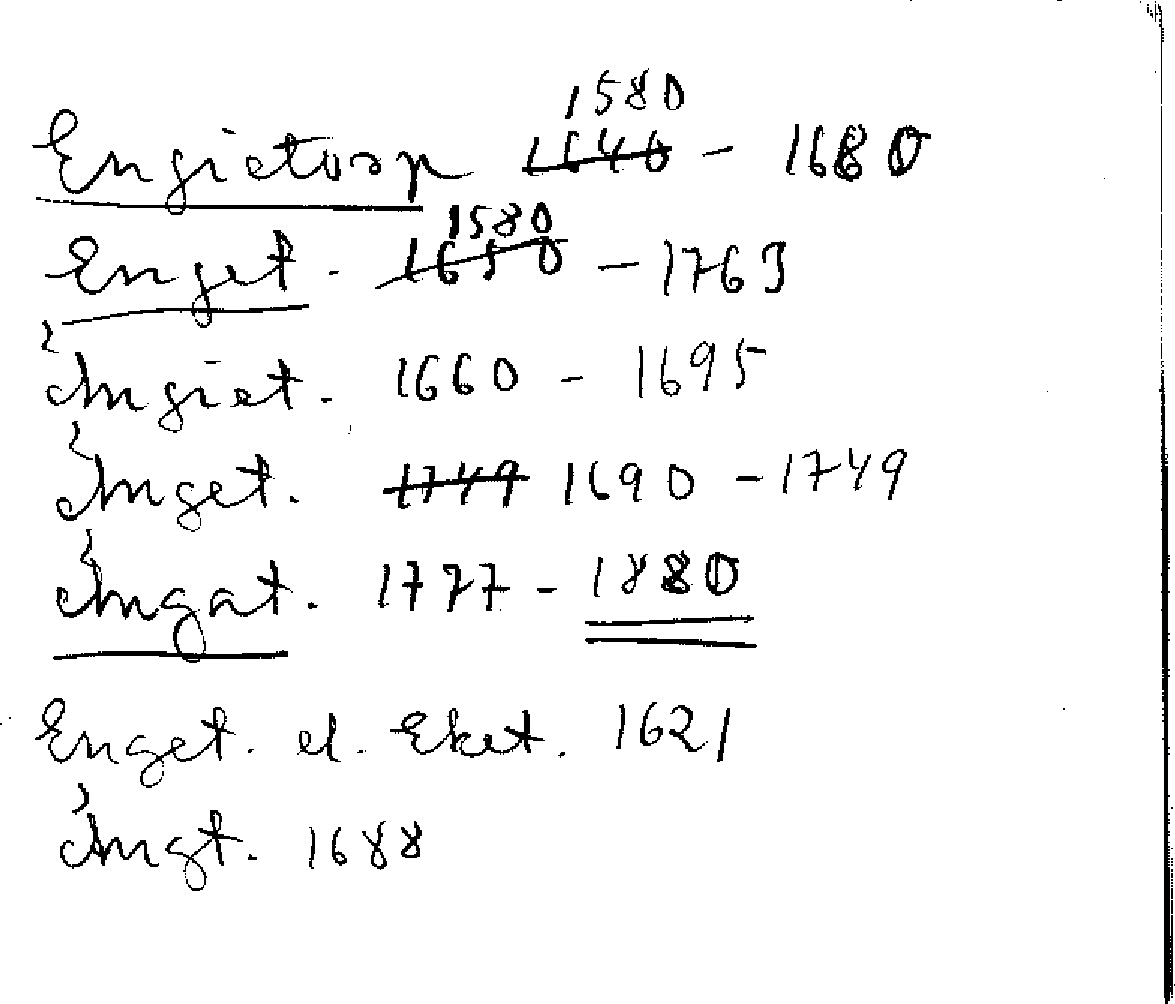 1580
Engietorp 1640 - 1680
1580
Enget. 1650 - 1763
Ängiet. 1660 - 1695
Änget. 1749 1690 - 1749
Ängat. 1777 - 1880
Enget. el. Eket. 1621
Ängt. 1688